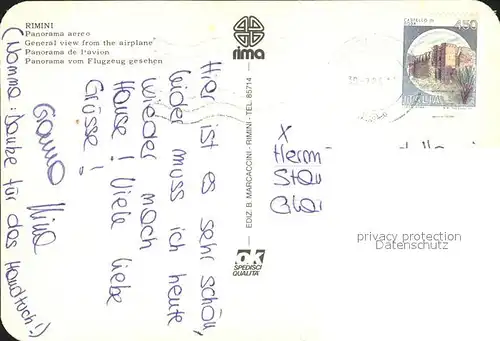 RIMINI
Panorama aereo
General view from the airplane
Panorama de l'avion
Panorama vom Flugzeug gesehen
rima
EDIZ. B. MARCACCINI - RIMINI - TEL. 85714
OK
SPEDISCI
QUALITA'
CASTELLO DI
450
Hier ist es sehr schön,
leider muss ich heute
wieder nach
Hause! Viele liebe
Grüsse!
(Mamma: Danke für das Handtuch!)
X
Herrn
privacy protection
Datenschutz